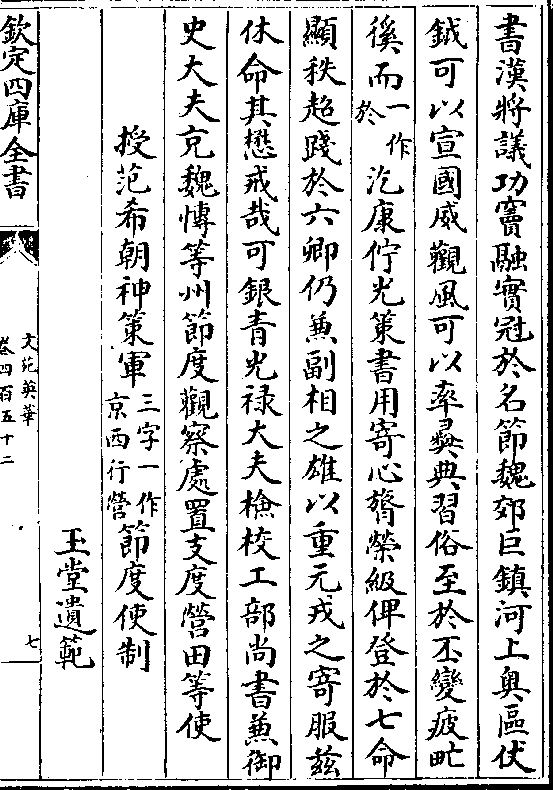 書漢將議功竇融實冠於名節魏郊巨鎮河上奧區伏
鉞可以宣國威觀風可以率彞典習俗至於丕變疲甿
徯而一作於汔康佇光策書用寄心膂榮級俾登於七命
顯秩超踐於六卿仍兼副相之雄以重元戎之寄服兹
休命其懋戒哉可銀青光禄大夫檢校工部尚書兼御
史大夫充魏慱等州節度觀察處置支度營田等使
授范希朝神策軍三字一作京西行營節度使制
玉堂遺範
欽定四庫全書
文苑英華
卷四百五十二
七